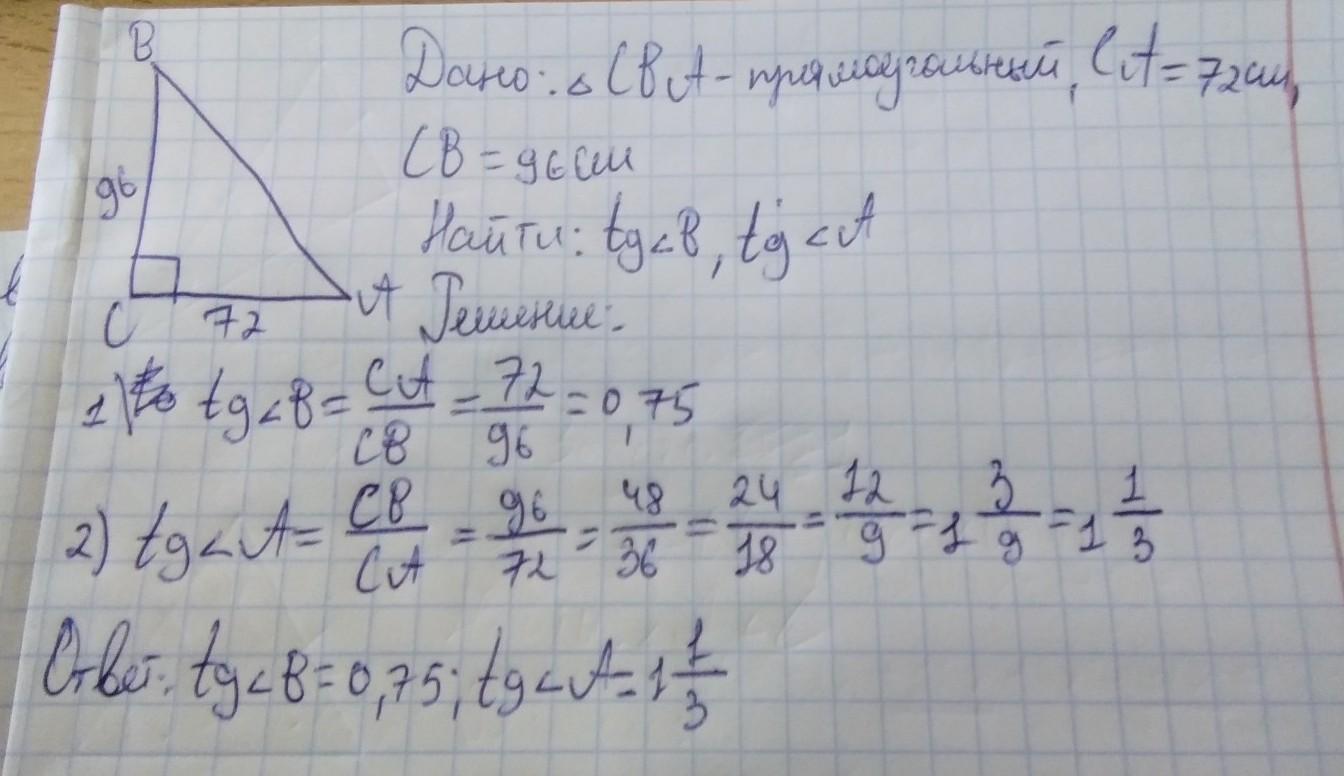 B
Дано: △ CBA - прямоугольный, CA = 72 см,
CB = 96 см
96
Найти: tg<B, tg<A
C 72 A Решение:
1) tg<B = CA/CB = 72/96 = 0,75
2) tg<A = CB/CA = 96/72 = 48/36 = 24/18 = 12/9 = 1 3/9 = 1 1/3
Ответ: tg<B = 0,75; tg<A = 1 1/3